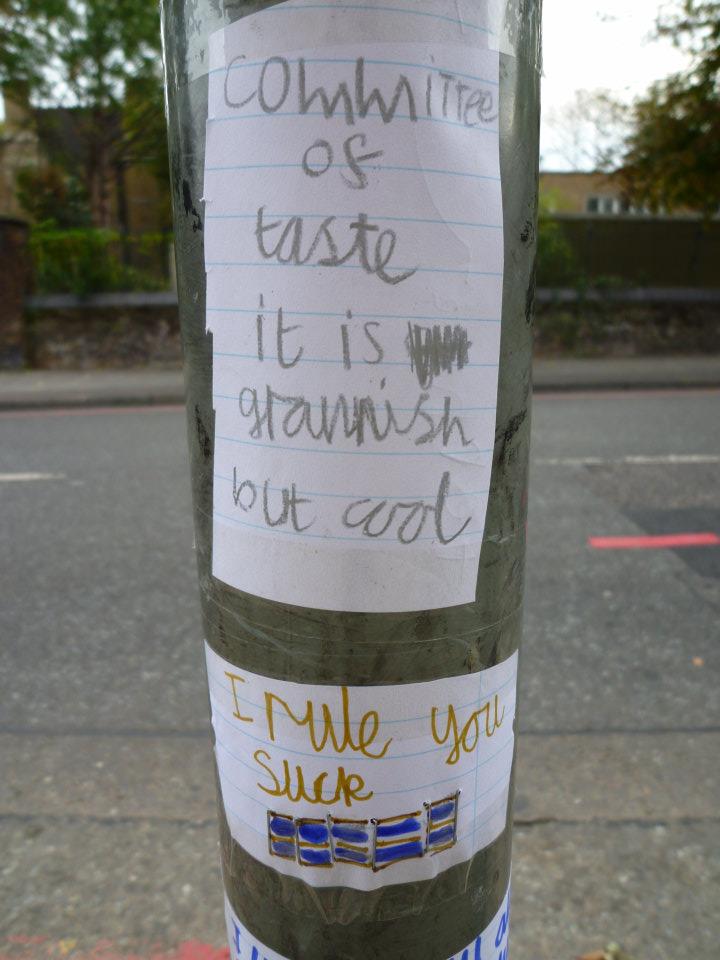 committee
of
taste
it is
grannish
but cool
I rule you
suck